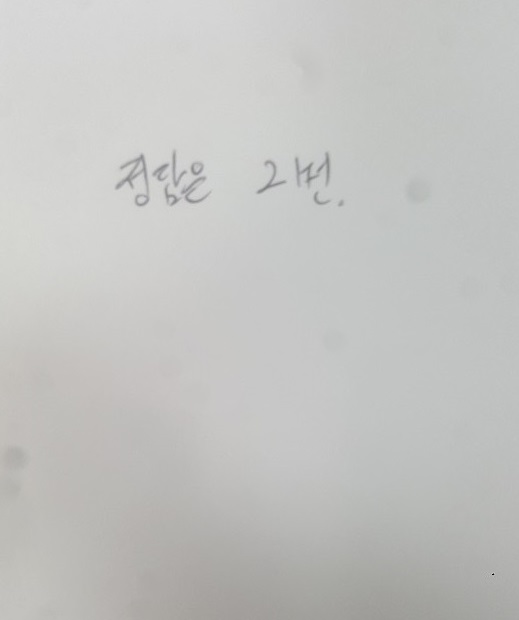 정답은 2번.